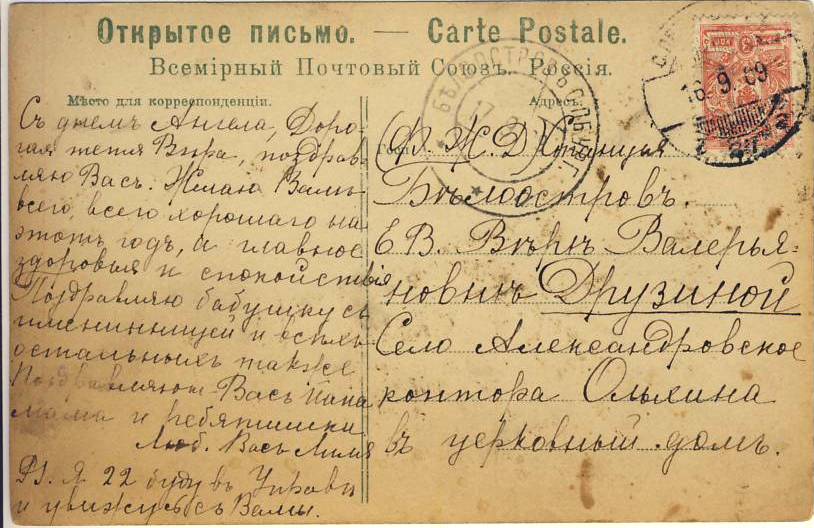 Открытое письмо. — Carte Postale.
Всемірный Почтовый Союзъ. Россія.
Мѣсто для корреспонденціи.
Адресъ.
Съ днемъ Ангела, Доро-
гая тетя Вѣра, поздрав-
ляю Васъ. Желаю Вамъ
всего, всего хорошаго на
этотъ годъ, и главное
здоровья и спокойствія
Поздравляю бабушку съ
именинницей и всѣхъ
остальныхъ также
Поздравляютъ Васъ Папа
мама и ребятишки
Люб. Васъ Лиля
PS. Я 22 буду въ
и увижусь съ Вами.
Ф. Ж. Д. Станція
Бѣлоостровъ.
Е В. Вѣрѣ Валерья-
новнѣ Друзиной
Село Александровское
контора Ольхина
въ церковный домъ.
БѢЛООСТРОВЪ С.П.БУРГ.
17. 9.
18. 9. 09